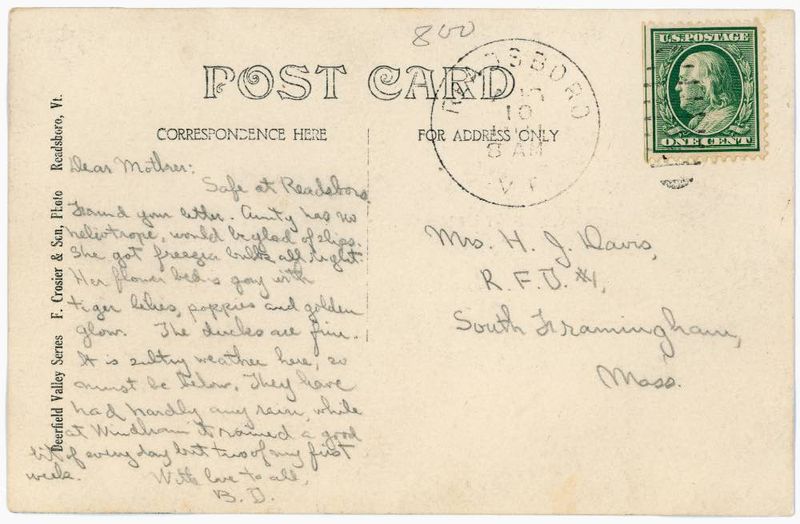 800
POST CARD
CORRESPONDENCE HERE
FOR ADDRESS ONLY
READSBORO
10
8 AM
VT
U.S.POSTAGE
ONE CENT
Deerfield Valley Series F. Crosier & Son, Photo Readsboro, Vt.
Dear Mother:
Safe at Readsboro
Found your letter. Aunty has no
heliotrope, would be glad of slips.
She got freezia bulbs all right.
Her flower bed is gay with
tiger lilies, poppies and golden
glow. The ducks are fine.
It is sultry weather here, so
must be below. They have
had hardly any rain, while
at Windham it rained a good
bit of every day but two of my first
week. With love to all,
B. D.
Mrs. H. J. Davis,
R. F. D. #1,
South Framingham,
Mass.